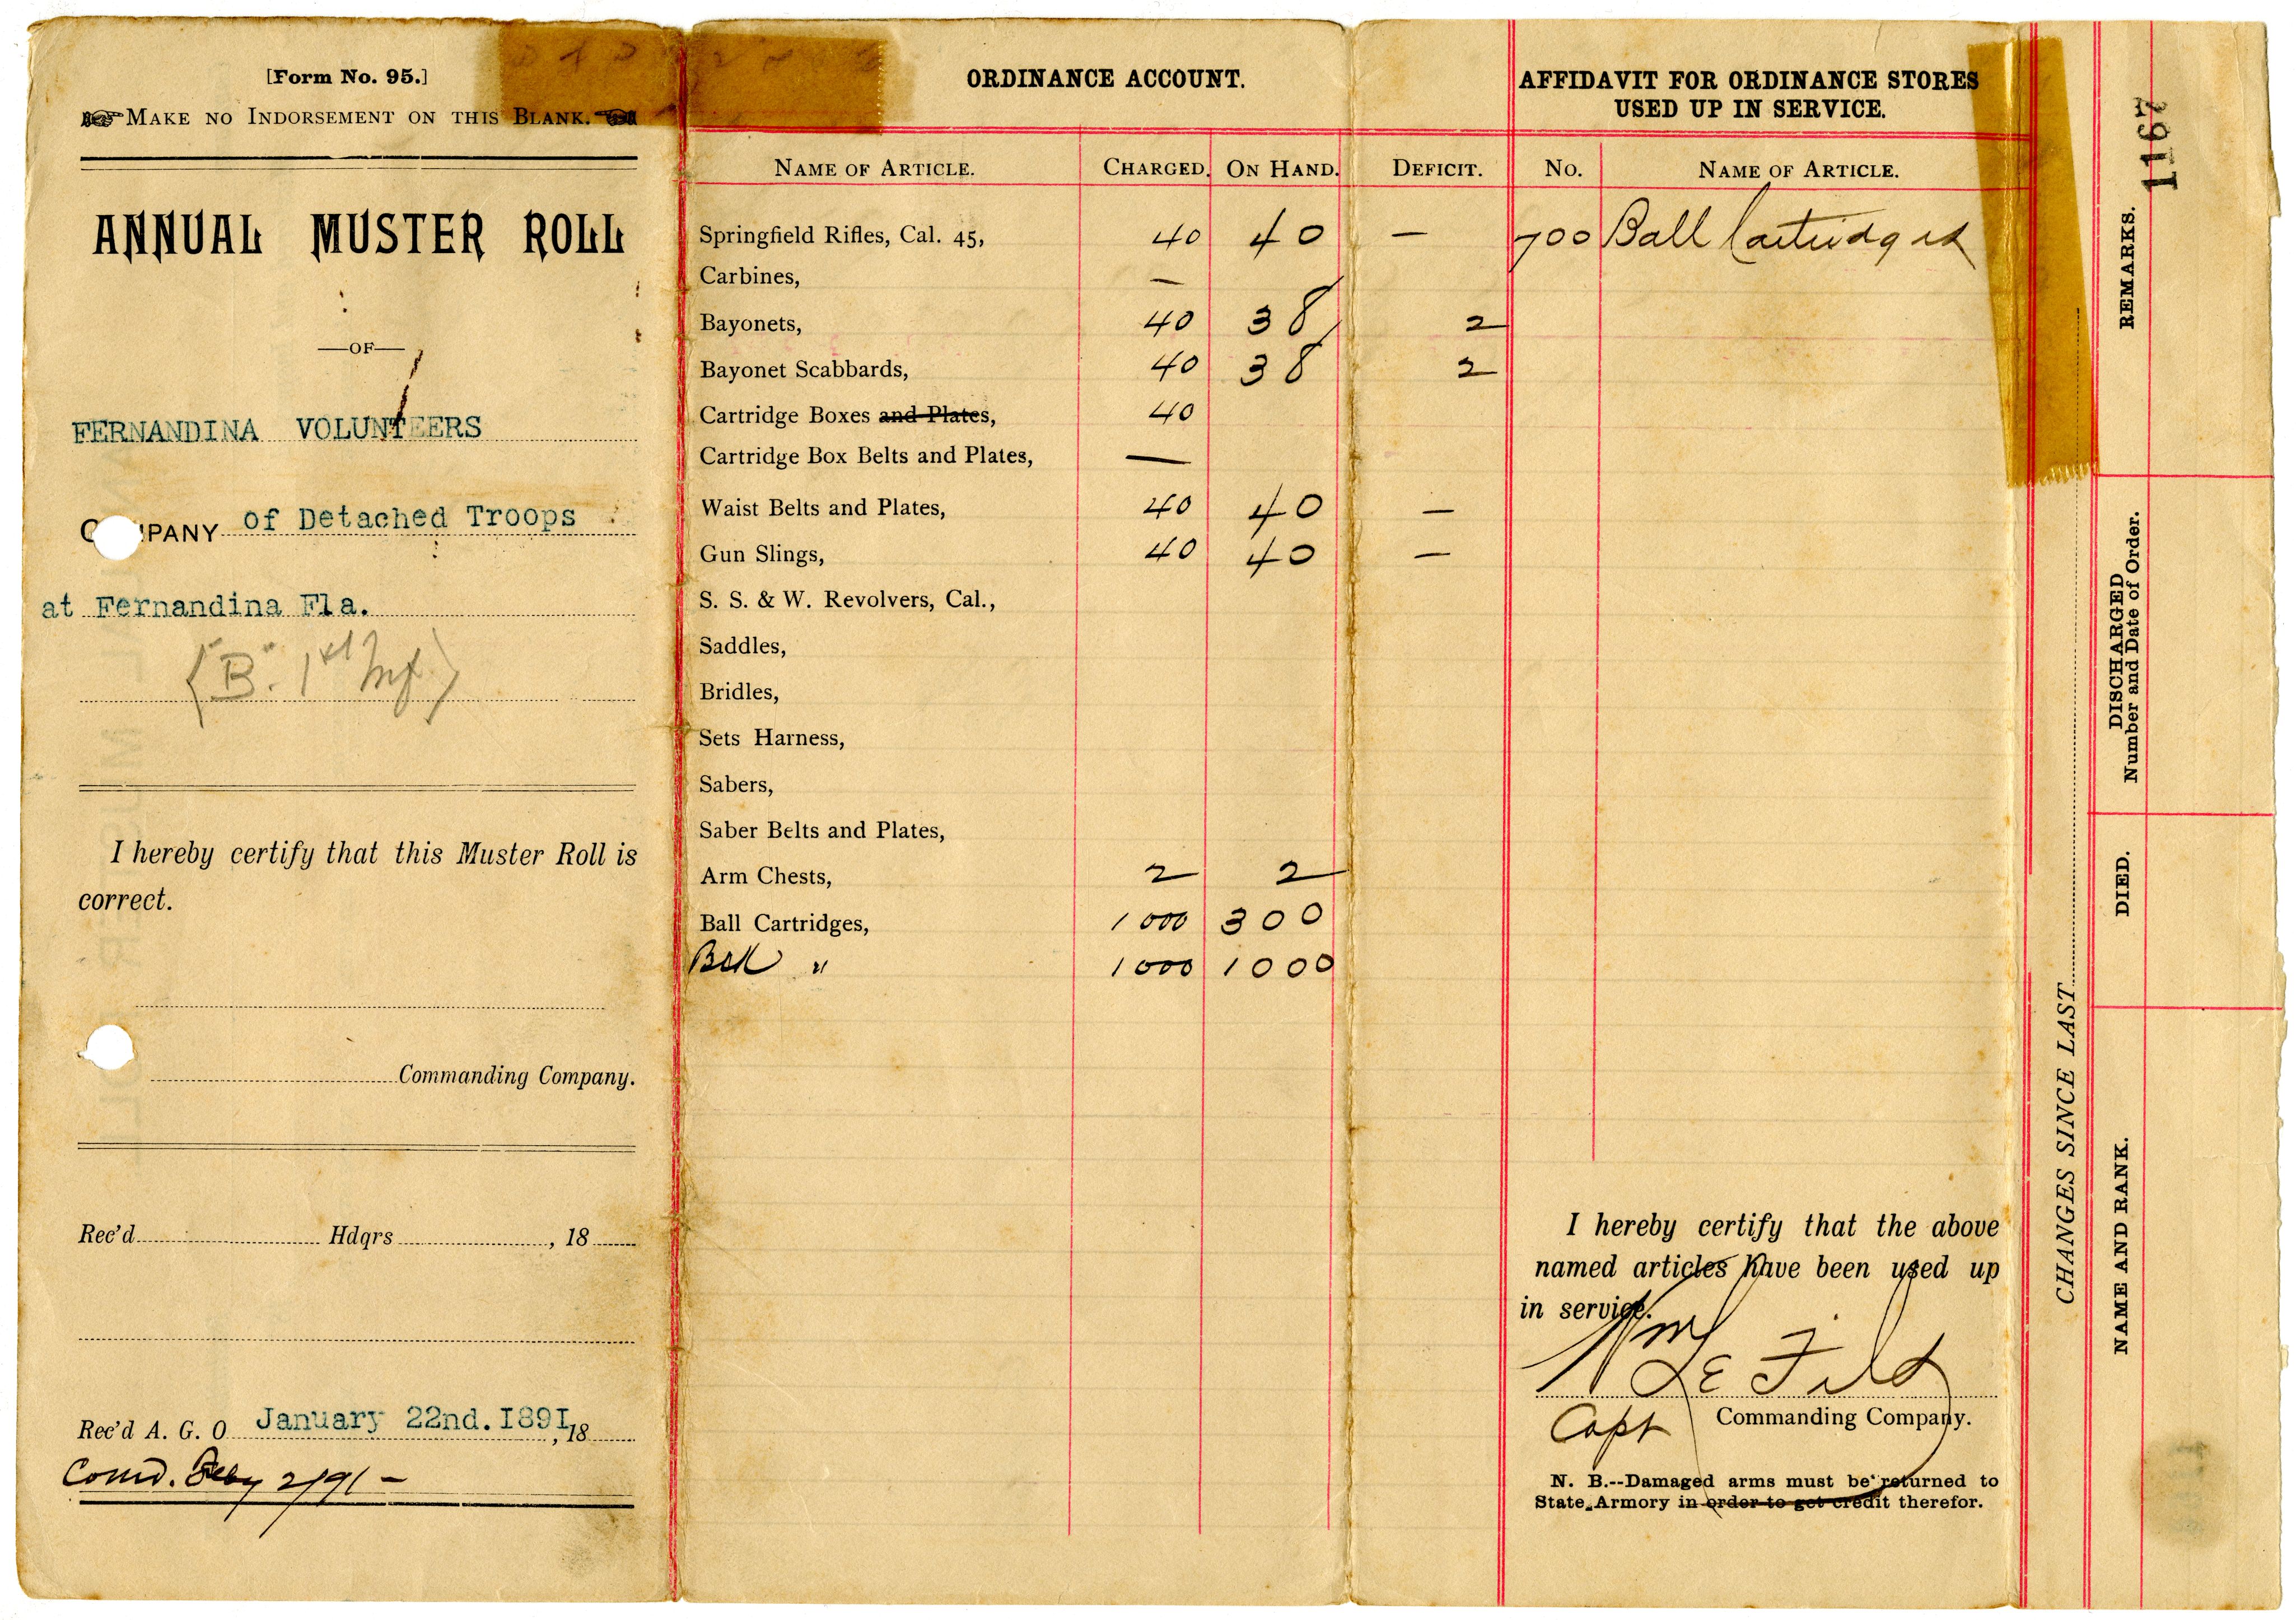 [Form No. 95.]
MAKE NO INDORSEMENT ON THIS BLANK.
ANNUAL MUSTER ROLL
—OF—
FERNANDINA VOLUNTEERS
COMPANY of Detached Troops
at Fernandina Fla.
("B". 1st Inf)
I hereby certify that this Muster Roll is
correct.
Commanding Company.
Rec'd Hdqrs , 18
Rec'd A. G. O. January 22nd. 1891, 18
Feby 2/91 –
ORDINANCE ACCOUNT.
NAME OF ARTICLE. CHARGED. ON HAND. DEFICIT.
Springfield Rifles, Cal. 45, 40 40 —
Carbines, —
Bayonets, 40 38 2
Bayonet Scabbards, 40 38 2
Cartridge Boxes and Plates, 40
Cartridge Box Belts and Plates, —
Waist Belts and Plates, 40 40 —
Gun Slings, 40 40 —
S. S. & W. Revolvers, Cal.,
Saddles,
Bridles,
Sets Harness,
Sabers,
Saber Belts and Plates,
Arm Chests, 2 2
Ball Cartridges, 1000 300
" 1000 1000
AFFIDAVIT FOR ORDINANCE STORES
USED UP IN SERVICE.
NO. NAME OF ARTICLE.
700 Ball Cartridges
I hereby certify that the above
named articles have been used up
in service.
Wm
Capt Commanding Company.
N. B.--Damaged arms must be returned to
State Armory in order to get credit therefor.
CHANGES SINCE LAST
NAME AND RANK.
DIED.
DISCHARGED
Number and Date of Order.
REMARKS.
1167